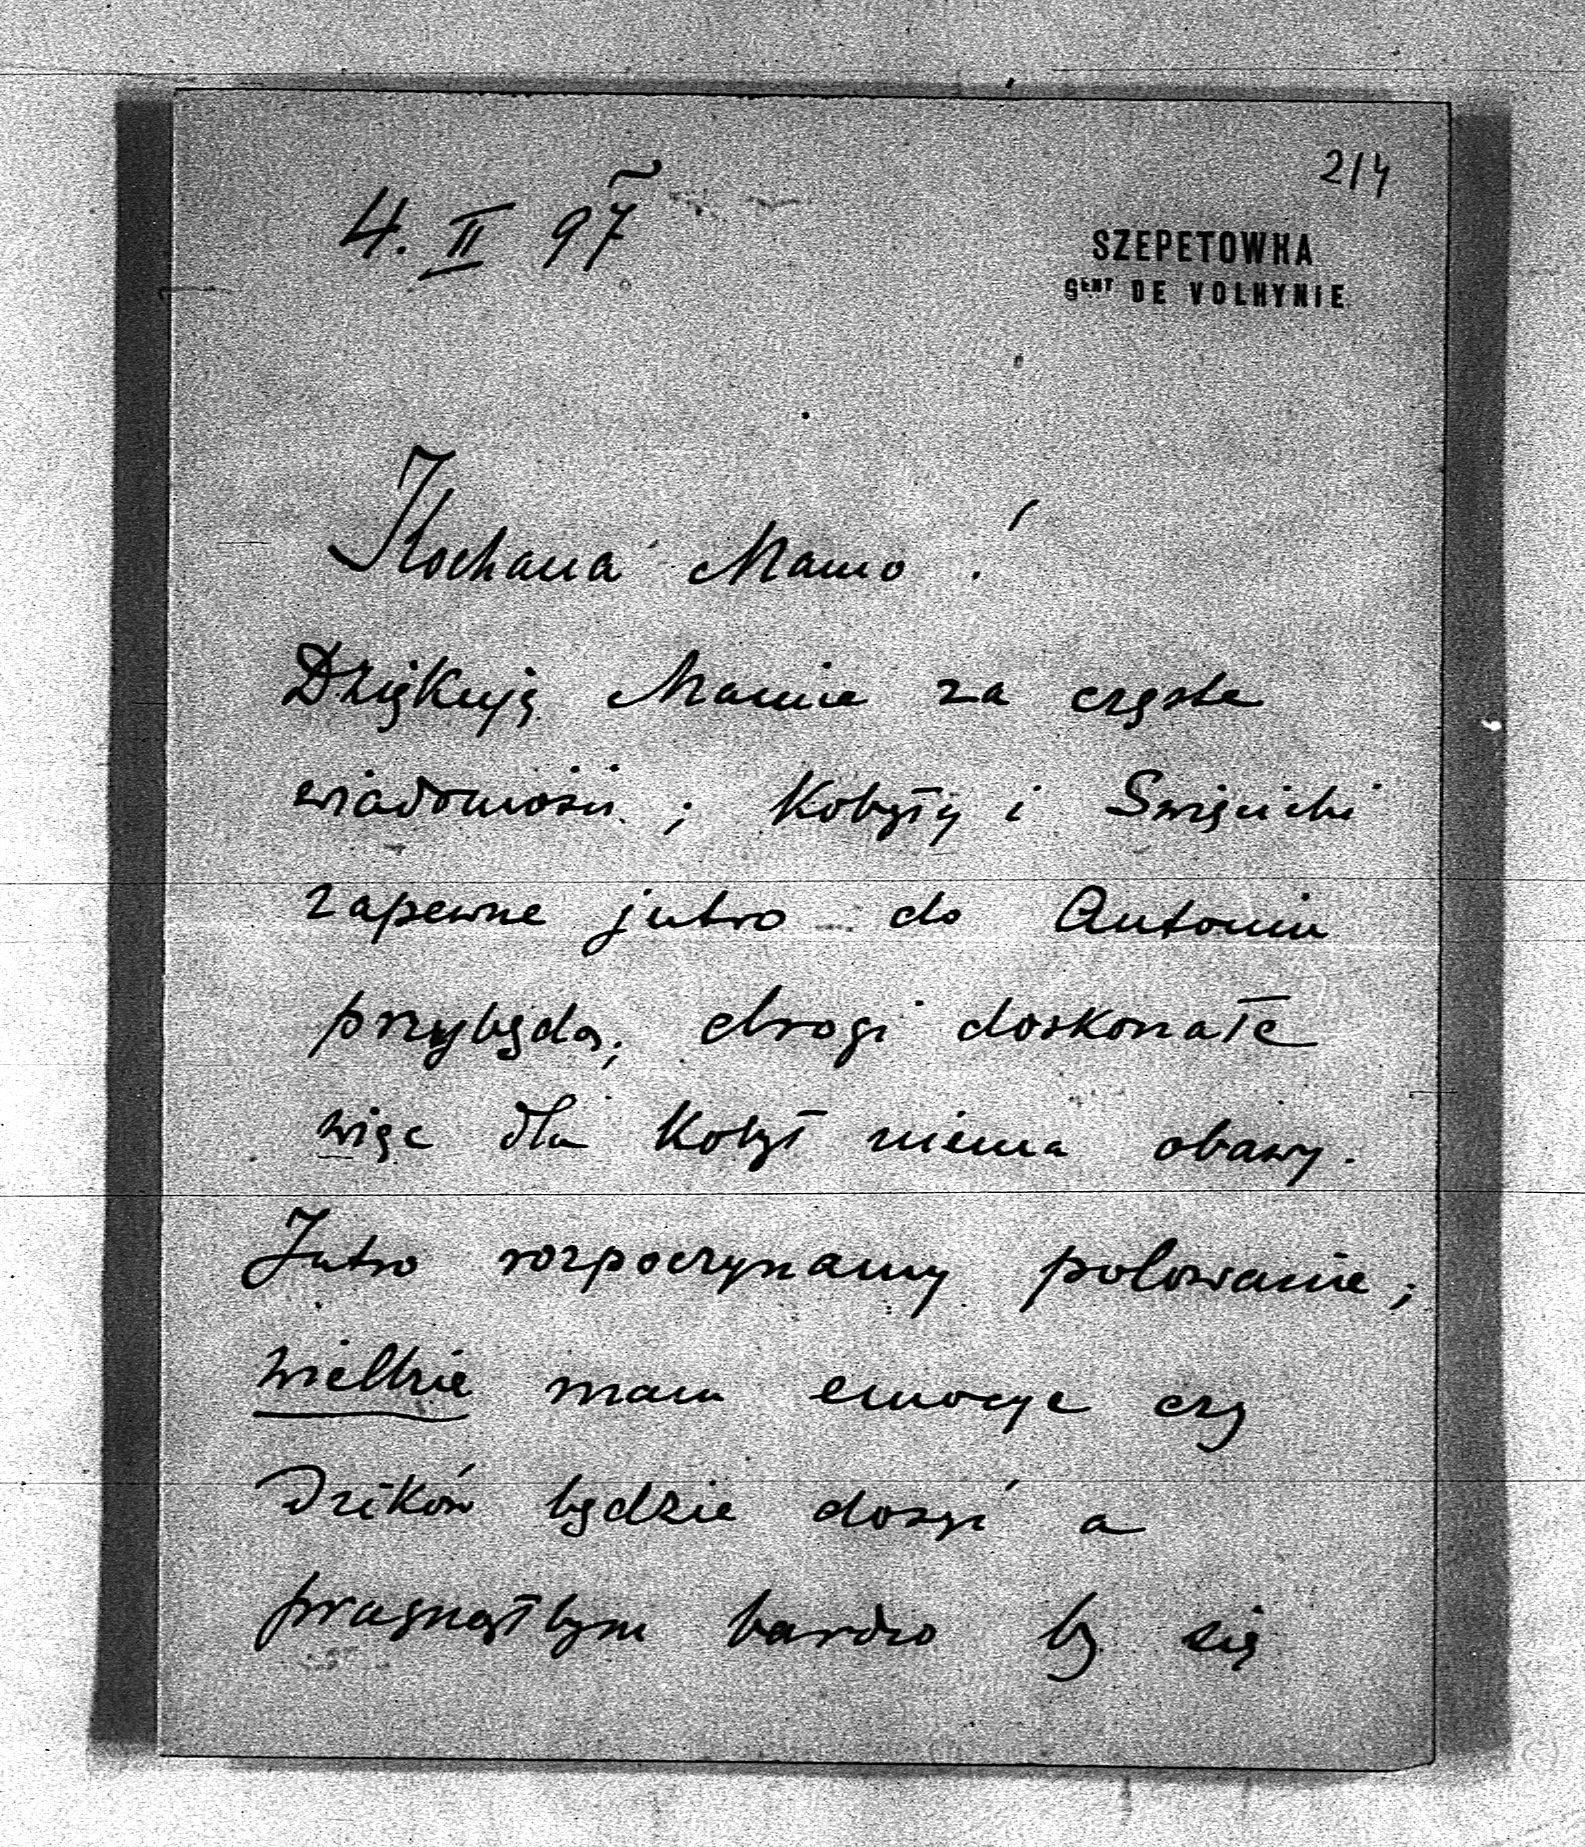 214
4. II 97
SZEPETOWKA
GENT DE VOLHYNIE
Kochana Mamo!
Dziękuję Mamie za częste
wiadomości; Kobyły i Swięcicki
zapewne jutro do Antonin
przybędą; drogi doskonałe
więc dla Kobył niema obawy.
Jutro rozpoczynamy polowanie;
wielkie mam emocye czy
Dzików będzie dosyć a
pragnąłbym bardzo by się